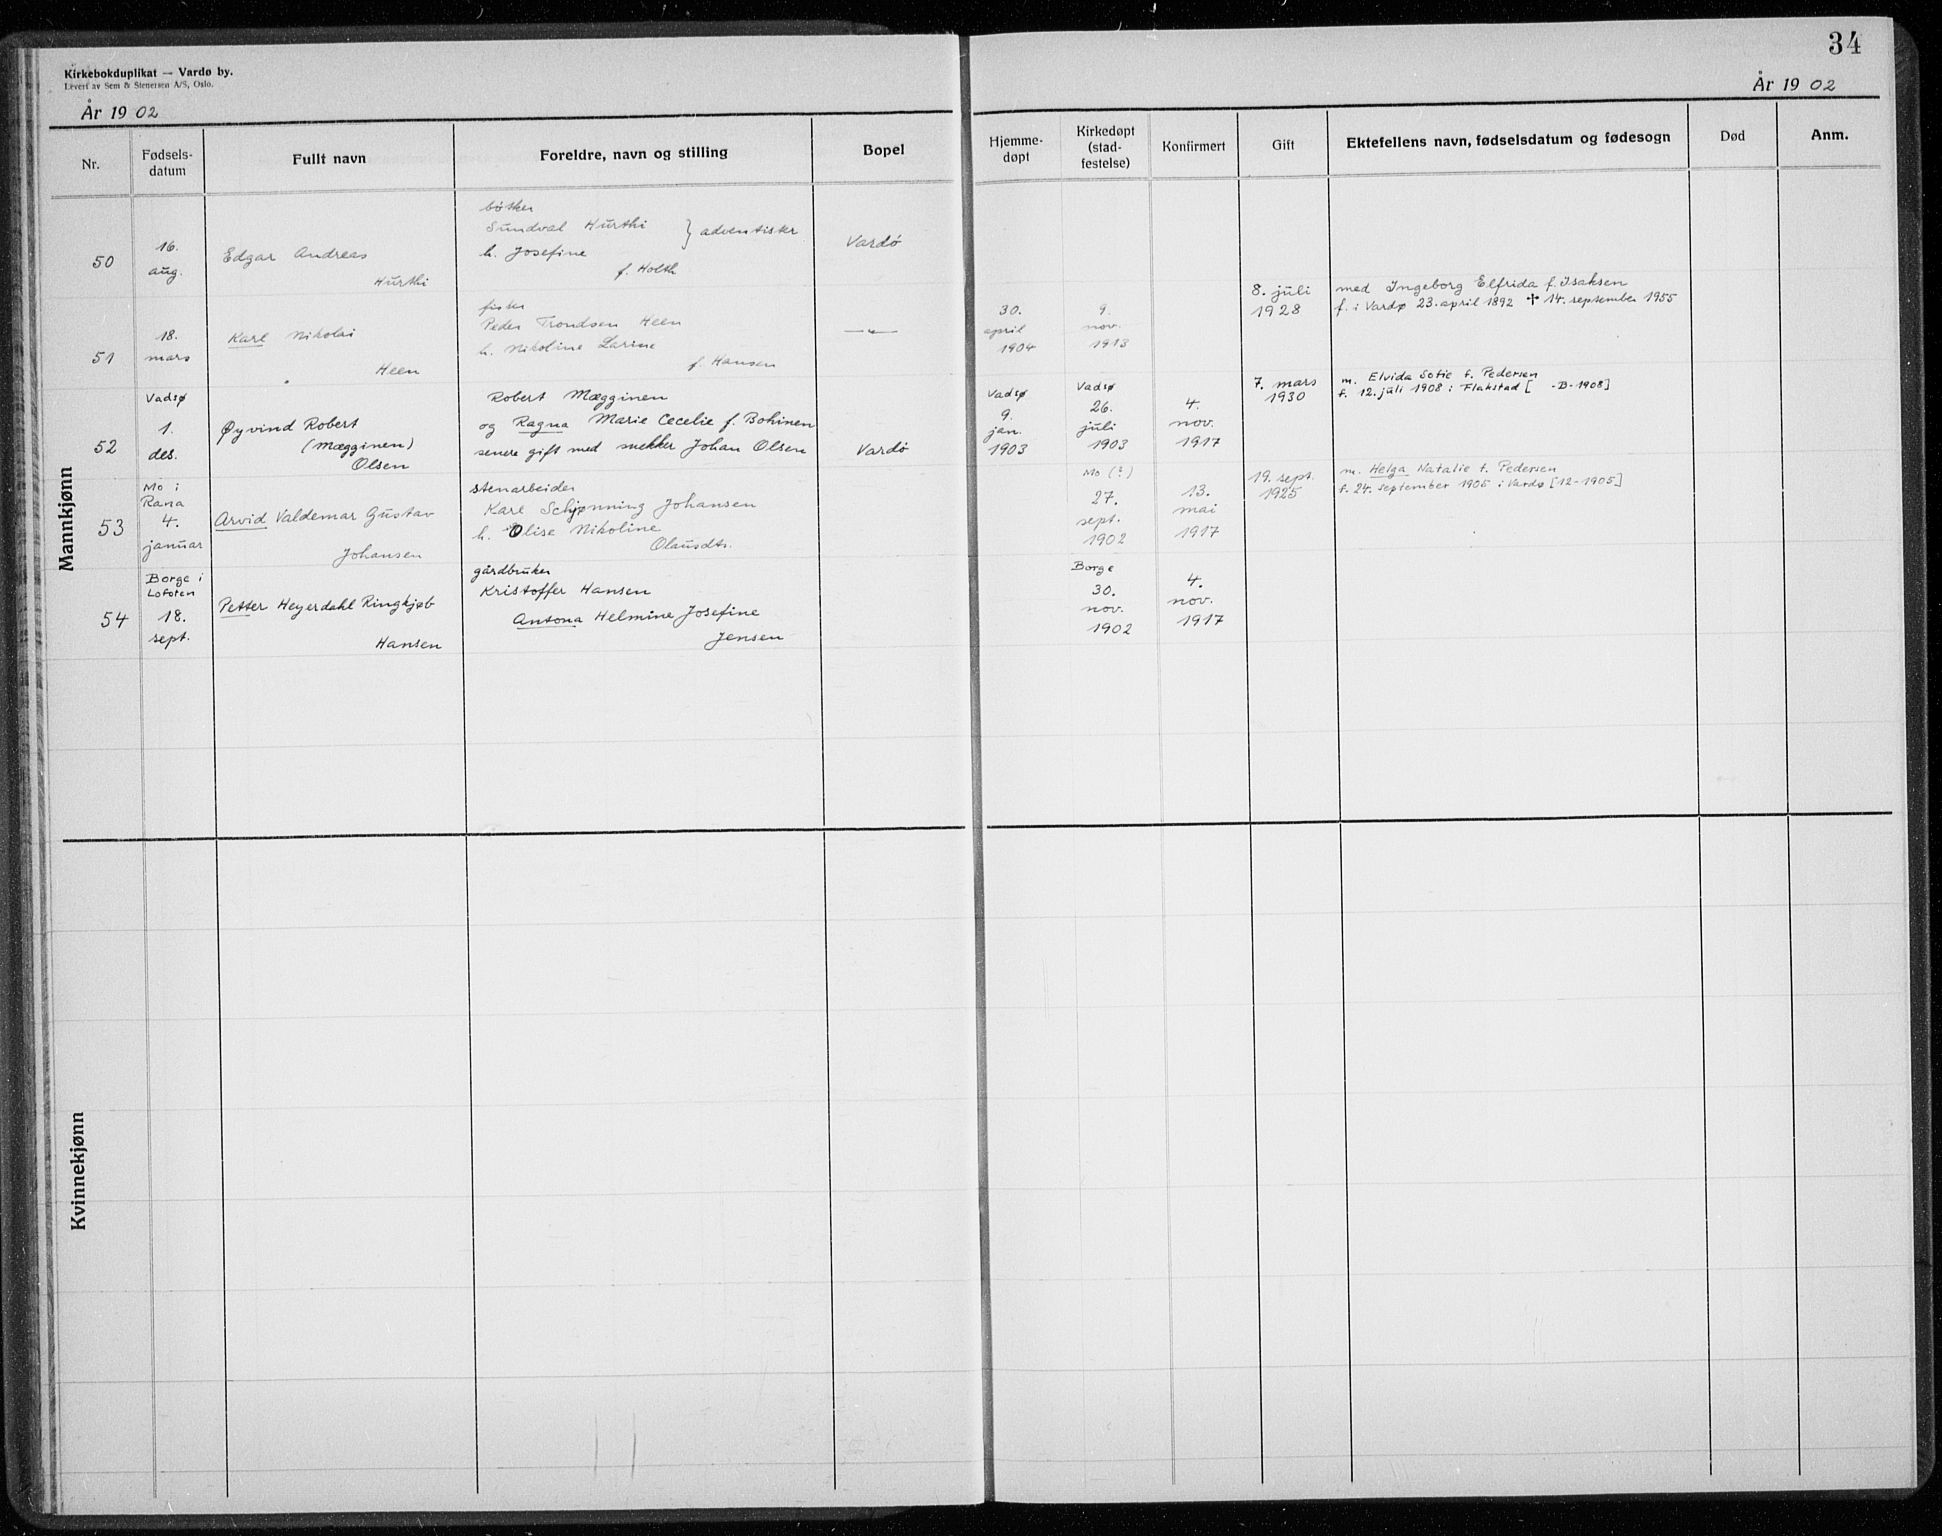 34
Kirkebokduplikat — Vardø by.
Levert av Sem & Stenersen A/S, Oslo.
År 1902
År 1902
Nr.
Fødsels-
datum
Fullt navn
Foreldre, navn og stilling
Bopel
Hjemme-
døpt
Kirkedøpt
(stad-
festelse)
Konfirmert
Gift
Ektefellens navn, fødselsdatum og fødesogn
Død
Anm.
Mannkjønn
50
16.
aug.
Edgar Andreas
Hurthi
bøtker
Sundval Hurthi } adventister
h. Josefine
f. Holth
Vardø
51
18.
mars
Karl Nikolai
Heen
fisker
Peder Trondsen Heen
h. Nikoline Larine
f. Hansen
—"—
30.
april
1904
9.
nov.
1913
8. juli
1928
med Ingeborg Elfrida f. Isaksen
f. i Vardø 23. april 1892 ✝ 14. september 1955
52
Vadsø
1.
des.
Øyvind Robert
(Mægginen)
Olsen
Robert Mægginen
og Ragna Marie Cecelie f. Bohinen
senere gift med snekker Johan Olsen
Vardø
Vadsø
9.
jan.
1903
Vadsø
26.
juli
1903
4.
nov.
1917
7. mars
1930
m. Elvida Sofie f. Pedersen
f. 12. juli 1908 i Flakstad [ -B-1908]
53
Mo i
Rana
4.
januar
Arvid Valdemar Gustav
Johansen
stenarbeider
Karl Schjønning Johansen
h. Olise Nikoline
Olausdtr.
Mo (?)
27.
sept.
1902
13.
mai
1917
19. sept.
1925
m. Helga Natalie f. Pedersen
f. 24. september 1905 i Vardø [12-1905]
54
Borge i
Lofoten
18.
sept.
Petter Heyerdahl Ringkjøb
Hansen
gårdbruker
Kristoffer Hansen
Antona Helmine Josefine
Jensen
Borge
30.
nov.
1902
4.
nov.
1917
Kvinnekjønn